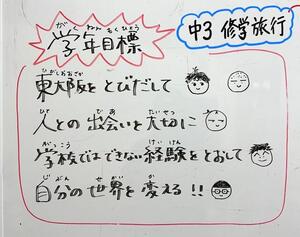 学年目標
がくねんもくひょう
中3 修学旅行
東大阪をとびだして
ひがしおおさか
人との出会いを大切に
ひと であ たいせつ
学校ではできない経験をとおして
がっこう けいけん
自分の世界を変える!!
じぶん せかい か